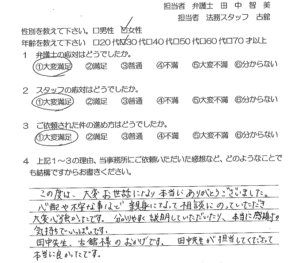 担当者 弁護士 田中智美
担当者 法務スタッフ 古館
性別を教えて下さい。 □男性 ☑女性
年齢を教えて下さい □20代☑30代□40代□50代□60代□70才以上
1 弁護士の応対はどうでしたか。
①大変満足 ②満足 ③普通 ④不満 ⑤大変不満 ⑥分からない
2 スタッフの応対はどうでしたか。
①大変満足 ②満足 ③普通 ④不満 ⑤大変不満 ⑥分からない
3 ご依頼された件の進め方はどうでしたか。
①大変満足 ②満足 ③普通 ④不満 ⑤大変不満 ⑥分からない
4 上記1~3の理由、当事務所にご依頼いただいた感想など、どのようなことで
も結構ですからお書きください。
この度は、大変お世話になり本当にありがとうございました。
心配や不安な事など親身になって相談にのっていただき
大変心強かったです。分かりやすく説明していただいたり、本当に感謝の
気持ちでいっぱいです。
田中先生、古舘様のおかげです。田中先生が担当してくださって
本当に良かったです。